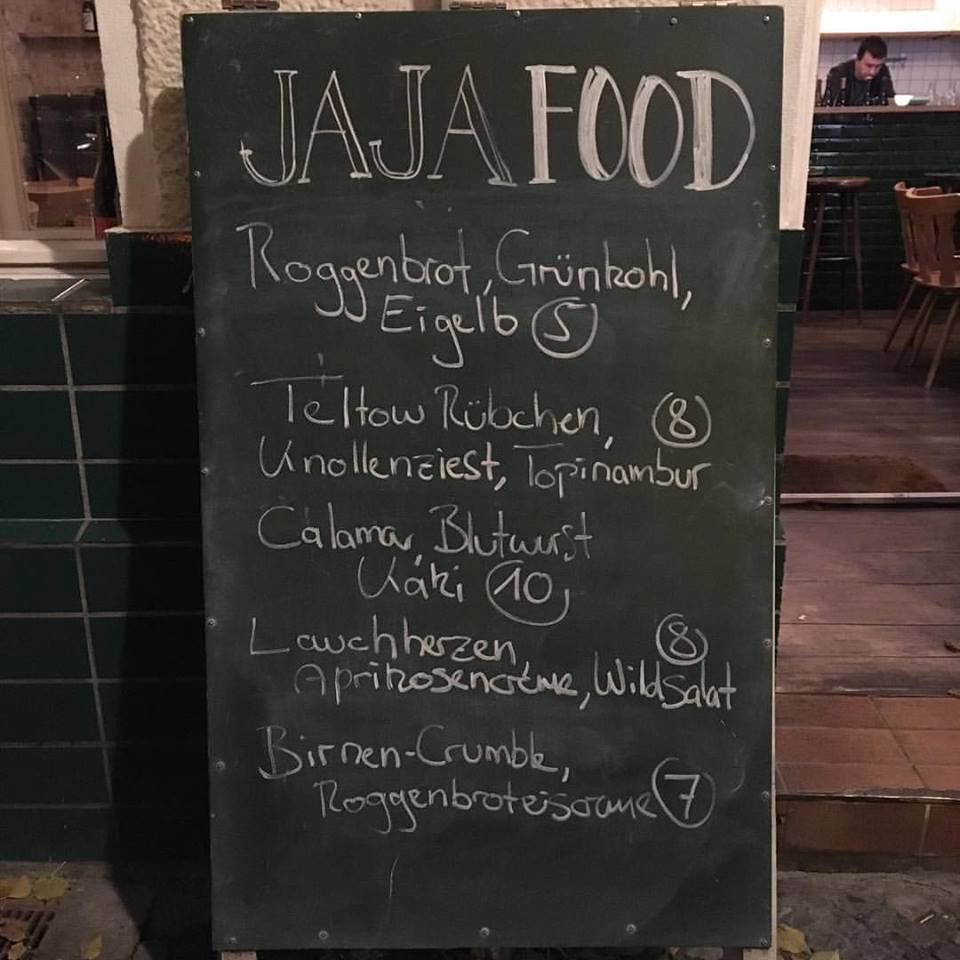 JAJA FOOD
Roggenbrot, Grünkohl,
Eigelb 5
Teltow Rübchen, 8
Knollenziest, Topinambur
Calamar, Blutwurst
Kaki 10
Lauchherzen, 8
Aprikosencrème, Wildsalat
Birnen-Crumble,
Roggenbroteiscrème 7